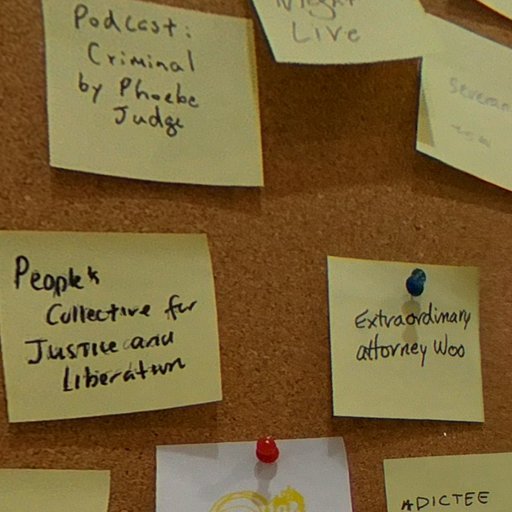 Podcast:
Criminal
by Phoebe
Judge
Night
Live
Severan
People's
Collective for
Justice and
Liberation
Extraordinary
attorney Woo
DICTEE